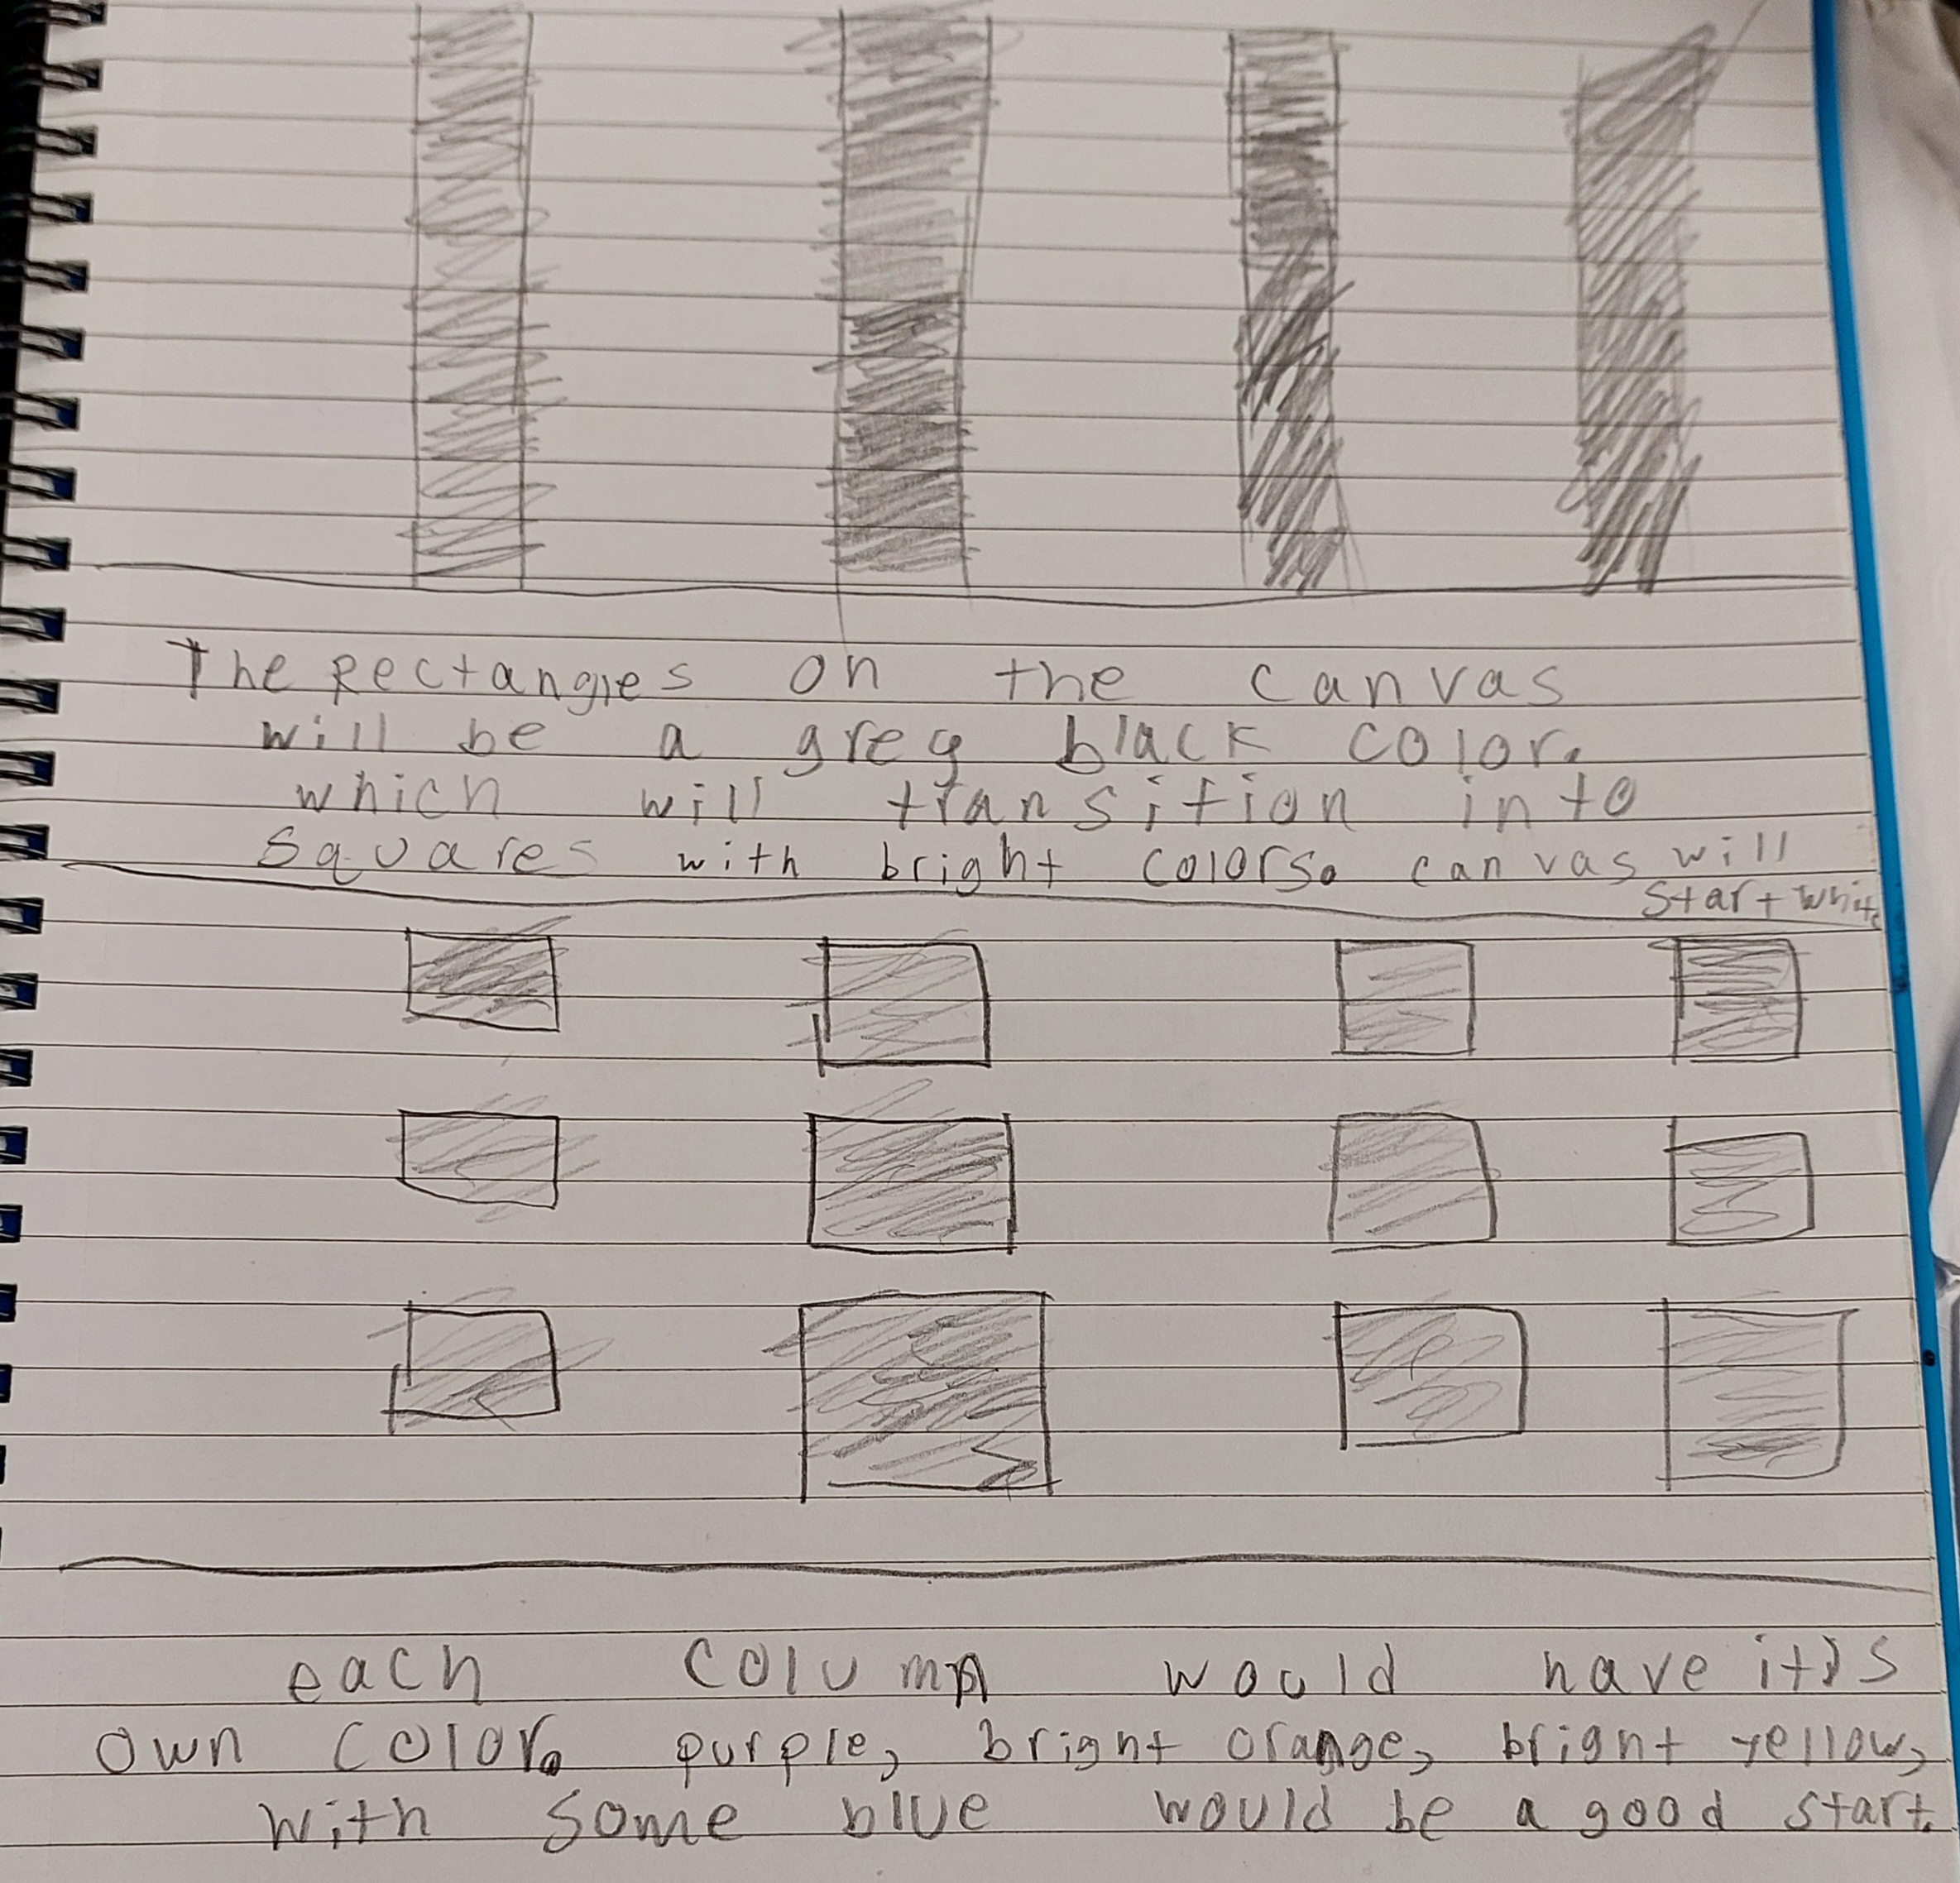 The Rectangles on the canvas
will be a grey black color.
which will transition into
Squares with bright colors. canvas will
start white
each column would have it's
own color. purple, bright orange, bright yellow,
with some blue would be a good start.